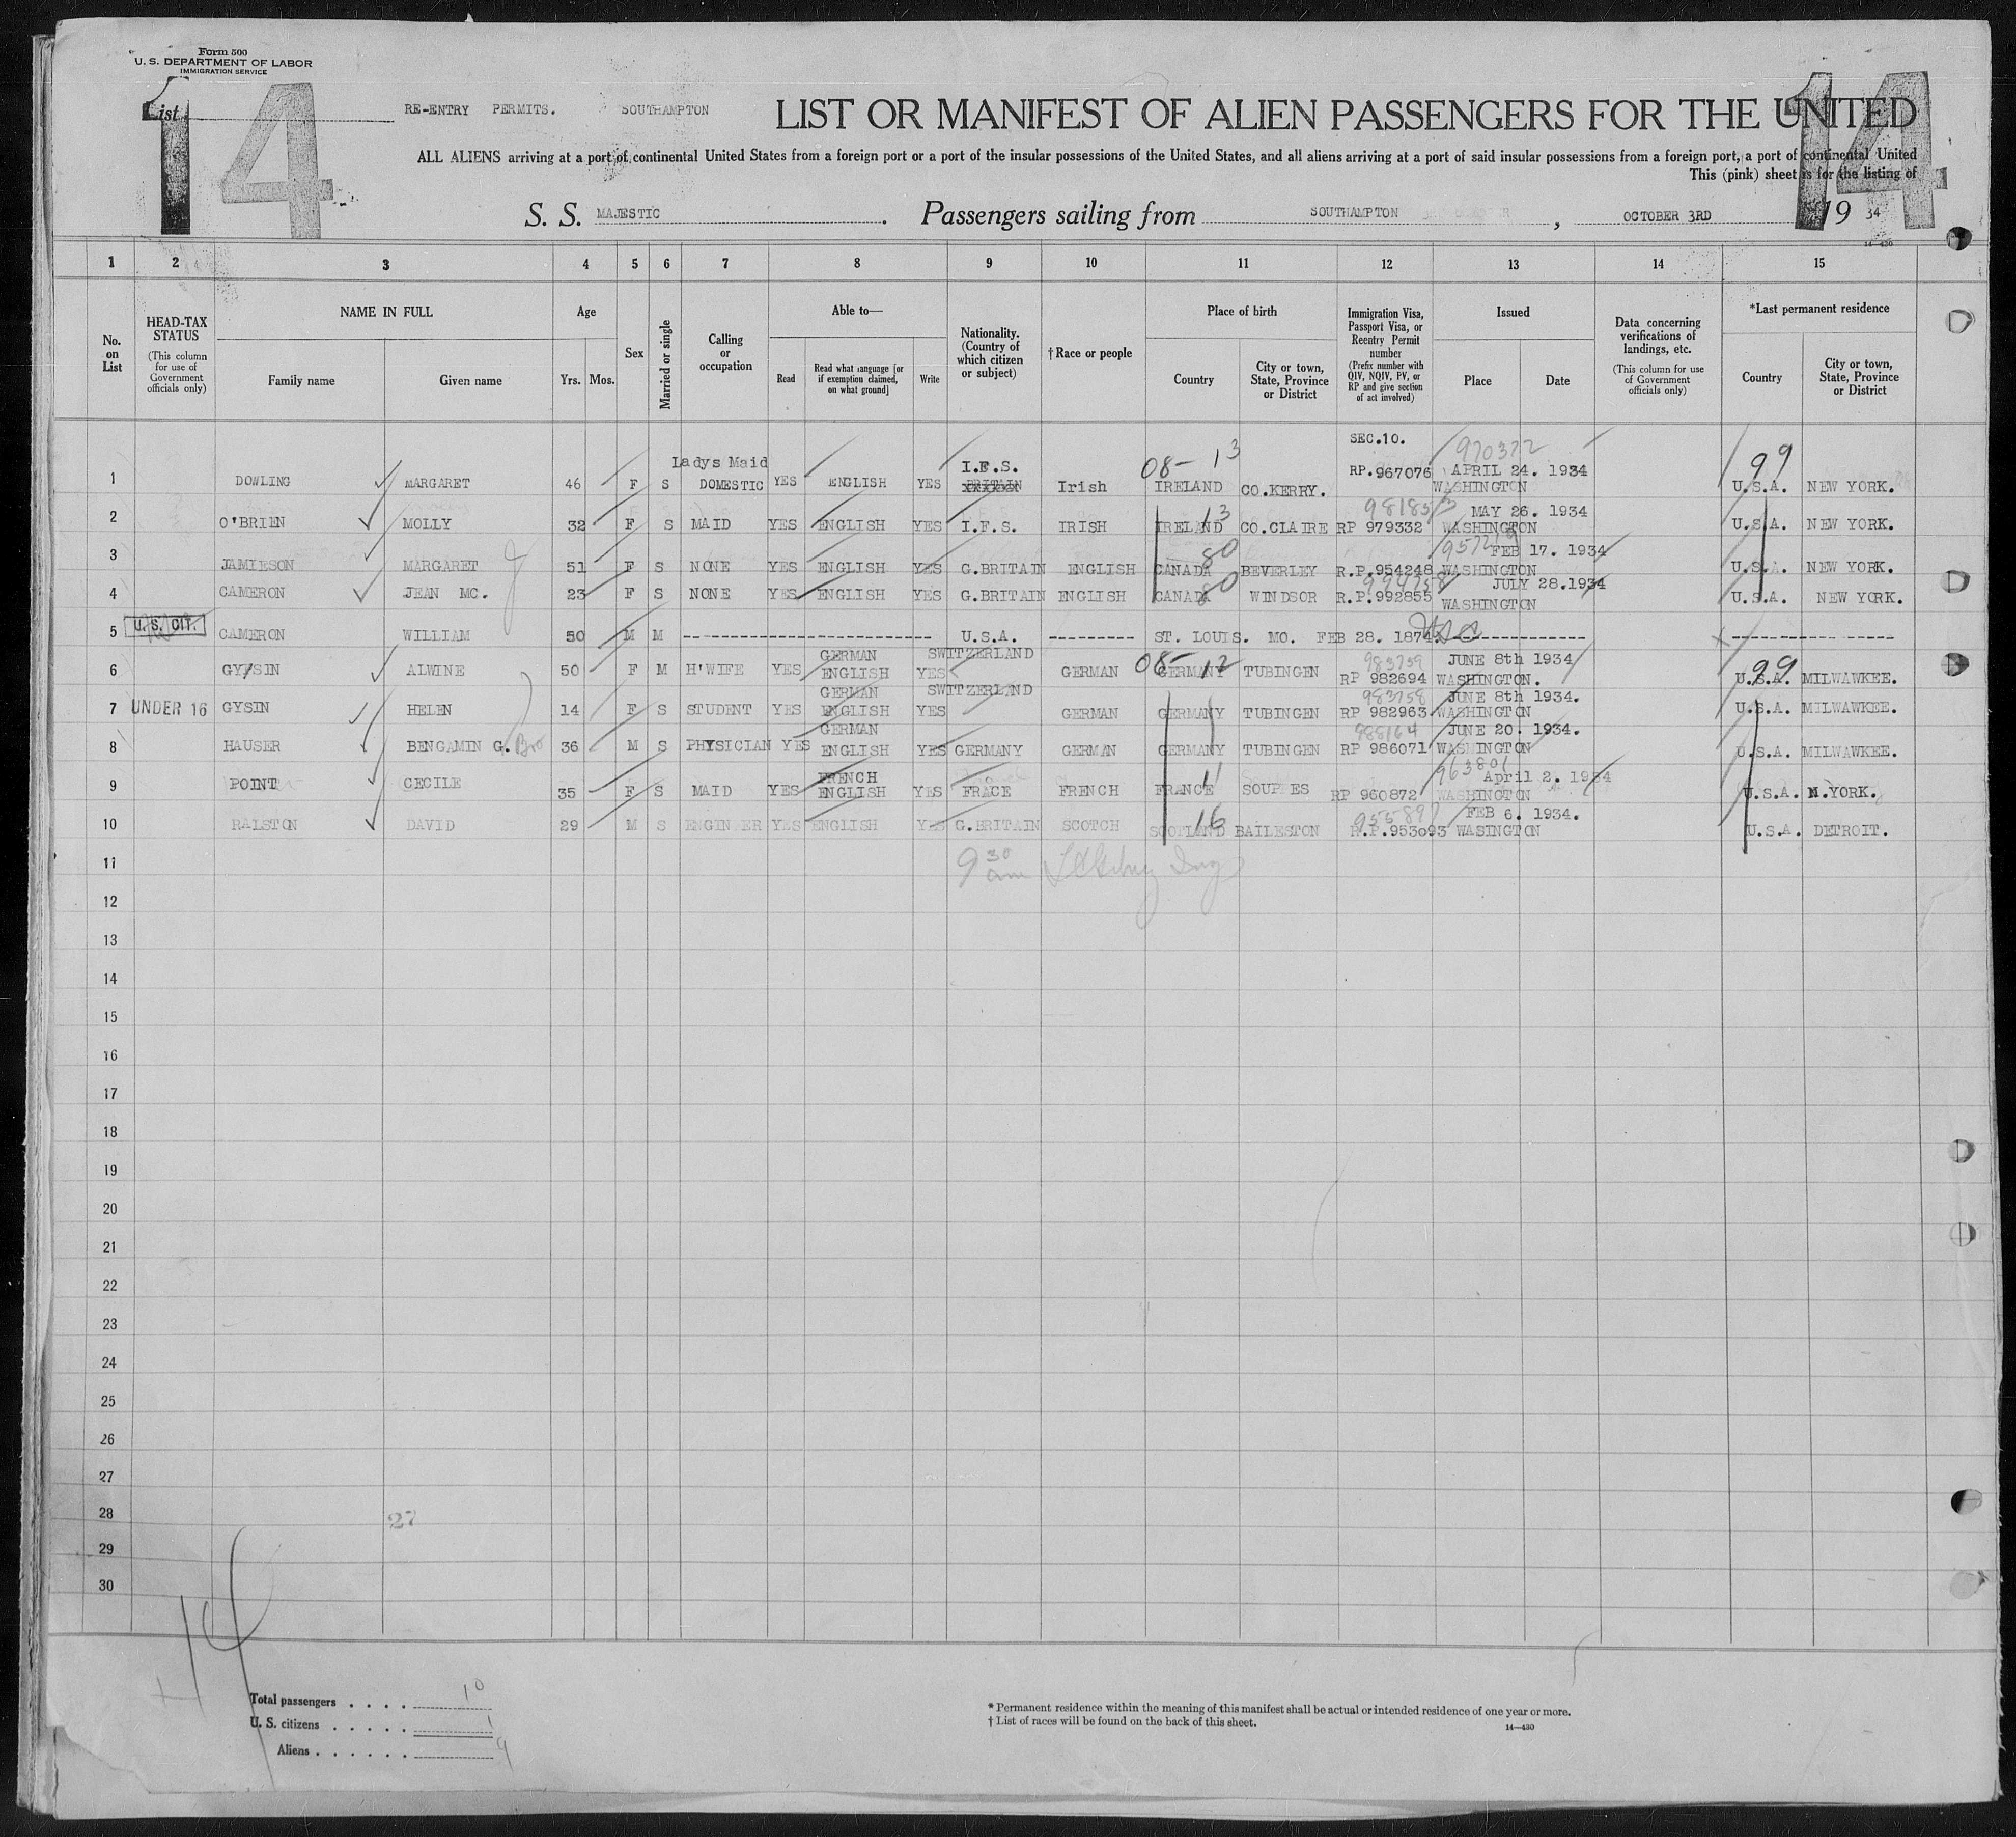 Form 500
U. S. DEPARTMENT OF LABOR
IMMIGRATION SERVICE
List 14
RE-ENTRY PERMITS. SOUTHAMPTON
LIST OR MANIFEST OF ALIEN PASSENGERS FOR THE UNITED
14
ALL ALIENS arriving at a port of continental United States from a foreign port or a port of the insular possessions of the United States, and all aliens arriving at a port of said insular possessions from a foreign port, a port of continental United
This (pink) sheet is for the listing of
S. S. MAJESTIC . Passengers sailing from SOUTHAMPTON , OCTOBER 3RD 19 34
14—430
1 2 3 4 5 6 7 8 9 10 11 12 13 14 15
No. on List
HEAD-TAX STATUS (This column for use of Government officials only)
NAME IN FULL Family name Given name
Age Yrs. Mos.
Sex
Married or single
Calling or occupation
Able to— Read Read what language [or if exemption claimed, on what ground] Write
Nationality. (Country of which citizen or subject)
† Race or people
Place of birth Country City or town, State, Province or District
Immigration Visa, Passport Visa, or Reentry Permit number (Prefix number with QIV, NQIV, PV, or RP and give section of act involved)
Issued Place Date
Data concerning verifications of landings, etc. (This column for use of Government officials only)
*Last permanent residence Country City or town, State, Province or District
SEC.10. 970372
Ladys Maid I.F.S. 08- 13 99
1 DOWLING MARGARET 46 F S DOMESTIC YES ENGLISH YES BRITAIN Irish IRELAND CO.KERRY. RP.967076 APRIL 24. 1934 WASHINGTON U.S.A. NEW YORK.
13 981853 MAY 26. 1934
2 O'BRIEN MOLLY 32 F S MAID YES ENGLISH YES I.F.S. IRISH IRELAND CO.CLAIRE RP 979332 WASHINGTON U.S.A. NEW YORK.
80 FEB 17. 1934
3 JAMIESON MARGARET 51 F S NONE YES ENGLISH YES G.BRITAIN ENGLISH CANADA BEVERLEY R.P.954248 WASHINGTON U.S.A. NEW YORK.
80 994758 JULY 28.1934
4 CAMERON JEAN MC. 23 F S NONE YES ENGLISH YES G.BRITAIN ENGLISH CANADA WINDSOR R.P.992855 WASHINGTON U.S.A. NEW YORK.
5 U.S. CIT. CAMERON WILLIAM 50 M M ---------- U.S.A. ---------- ST. LOUIS. MO. FEB 28. 1874. USC ----------
GERMAN SWITZERLAND 08- 12 983759 JUNE 8th 1934 99
6 GYSIN ALWINE 50 F M H'WIFE YES ENGLISH YES GERMAN GERMANY TUBINGEN RP 982694 WASHINGTON. U.S.A. MILWAWKEE.
GERMAN SWITZERLAND 983758 JUNE 8th 1934.
7 UNDER 16 GYSIN HELEN 14 F S STUDENT YES ENGLISH YES GERMAN GERMANY TUBINGEN RP 982963 WASHINGTON U.S.A. MILWAWKEE.
GERMAN 988164 JUNE 20. 1934.
8 HAUSER BENGAMIN G. Bro 36 M S PHYSICIAN YES ENGLISH YES GERMANY GERMAN GERMANY TUBINGEN RP 986071 WASHINGTON U.S.A. MILWAWKEE.
FRENCH 11 963801 April 2. 1934
9 POINT CECILE 35 F S MAID YES ENGLISH YES FRACE FRENCH FRANCE SOUPPES RP 960872 WASHINGTON U.S.A. N.YORK.
16 955897 FEB 6. 1934.
10 RALSTON DAVID 29 M S ENGINEER YES ENGLISH YES G.BRITAIN SCOTCH SCOTLAND BAILESTON R.P.953093 WASINGTON U.S.A. DETROIT.
11 9 30 am
12
13
14
15
16
17
18
19
20
21
22
23
24
25
26
27
28 27
29
30
14
Total passengers . . . . 10
U. S. citizens . . . . . 1
Aliens . . . . . . 9
* Permanent residence within the meaning of this manifest shall be actual or intended residence of one year or more.
† List of races will be found on the back of this sheet.
14—430